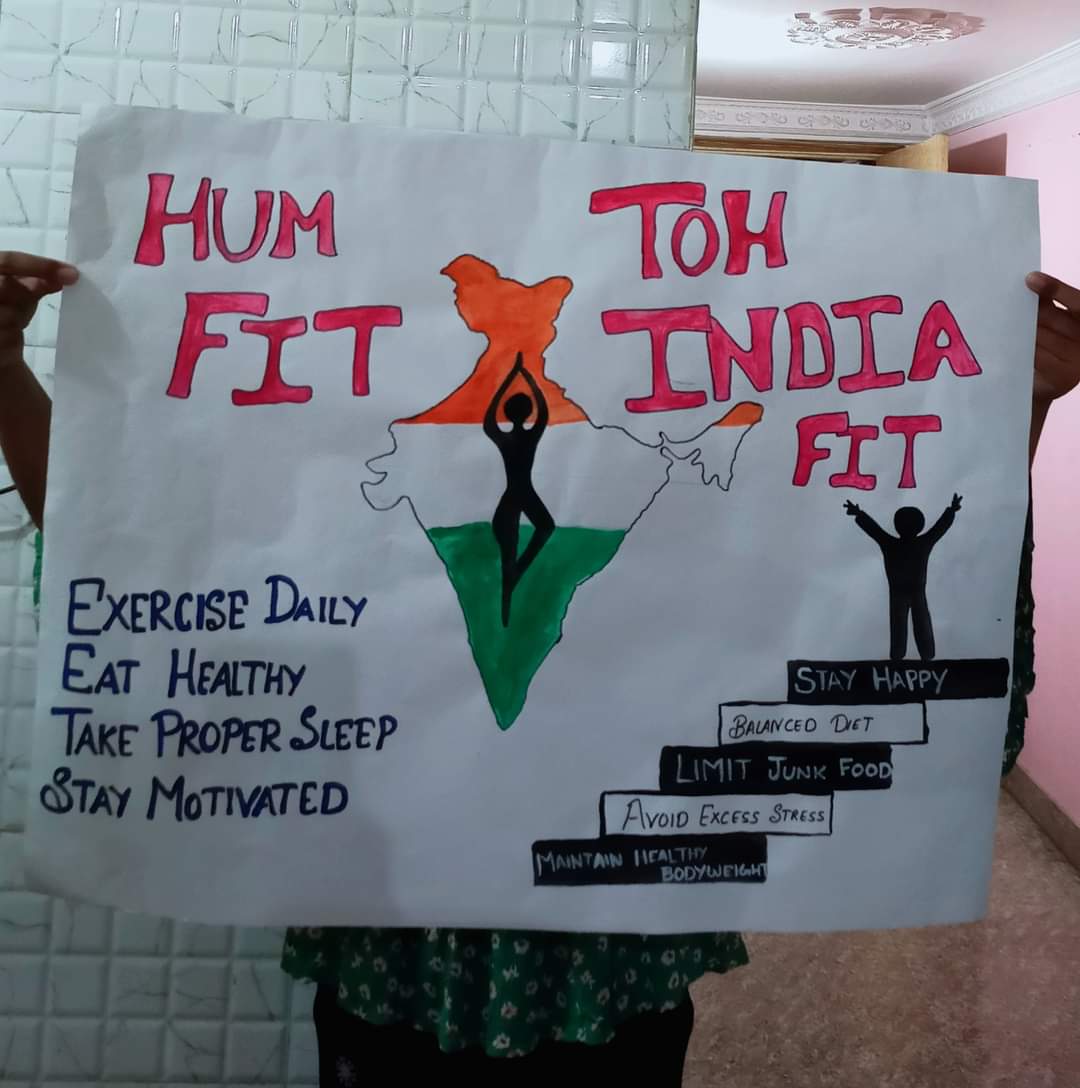 HUM TOH
FIT INDIA
FIT
EXERCISE DAILY
EAT HEALTHY
TAKE PROPER SLEEP
STAY MOTIVATED
STAY HAPPY
BALANCED DIET
LIMIT JUNK FOOD
AVOID EXCESS STRESS
MAINTAIN HEALTHY
BODYWEIGHT